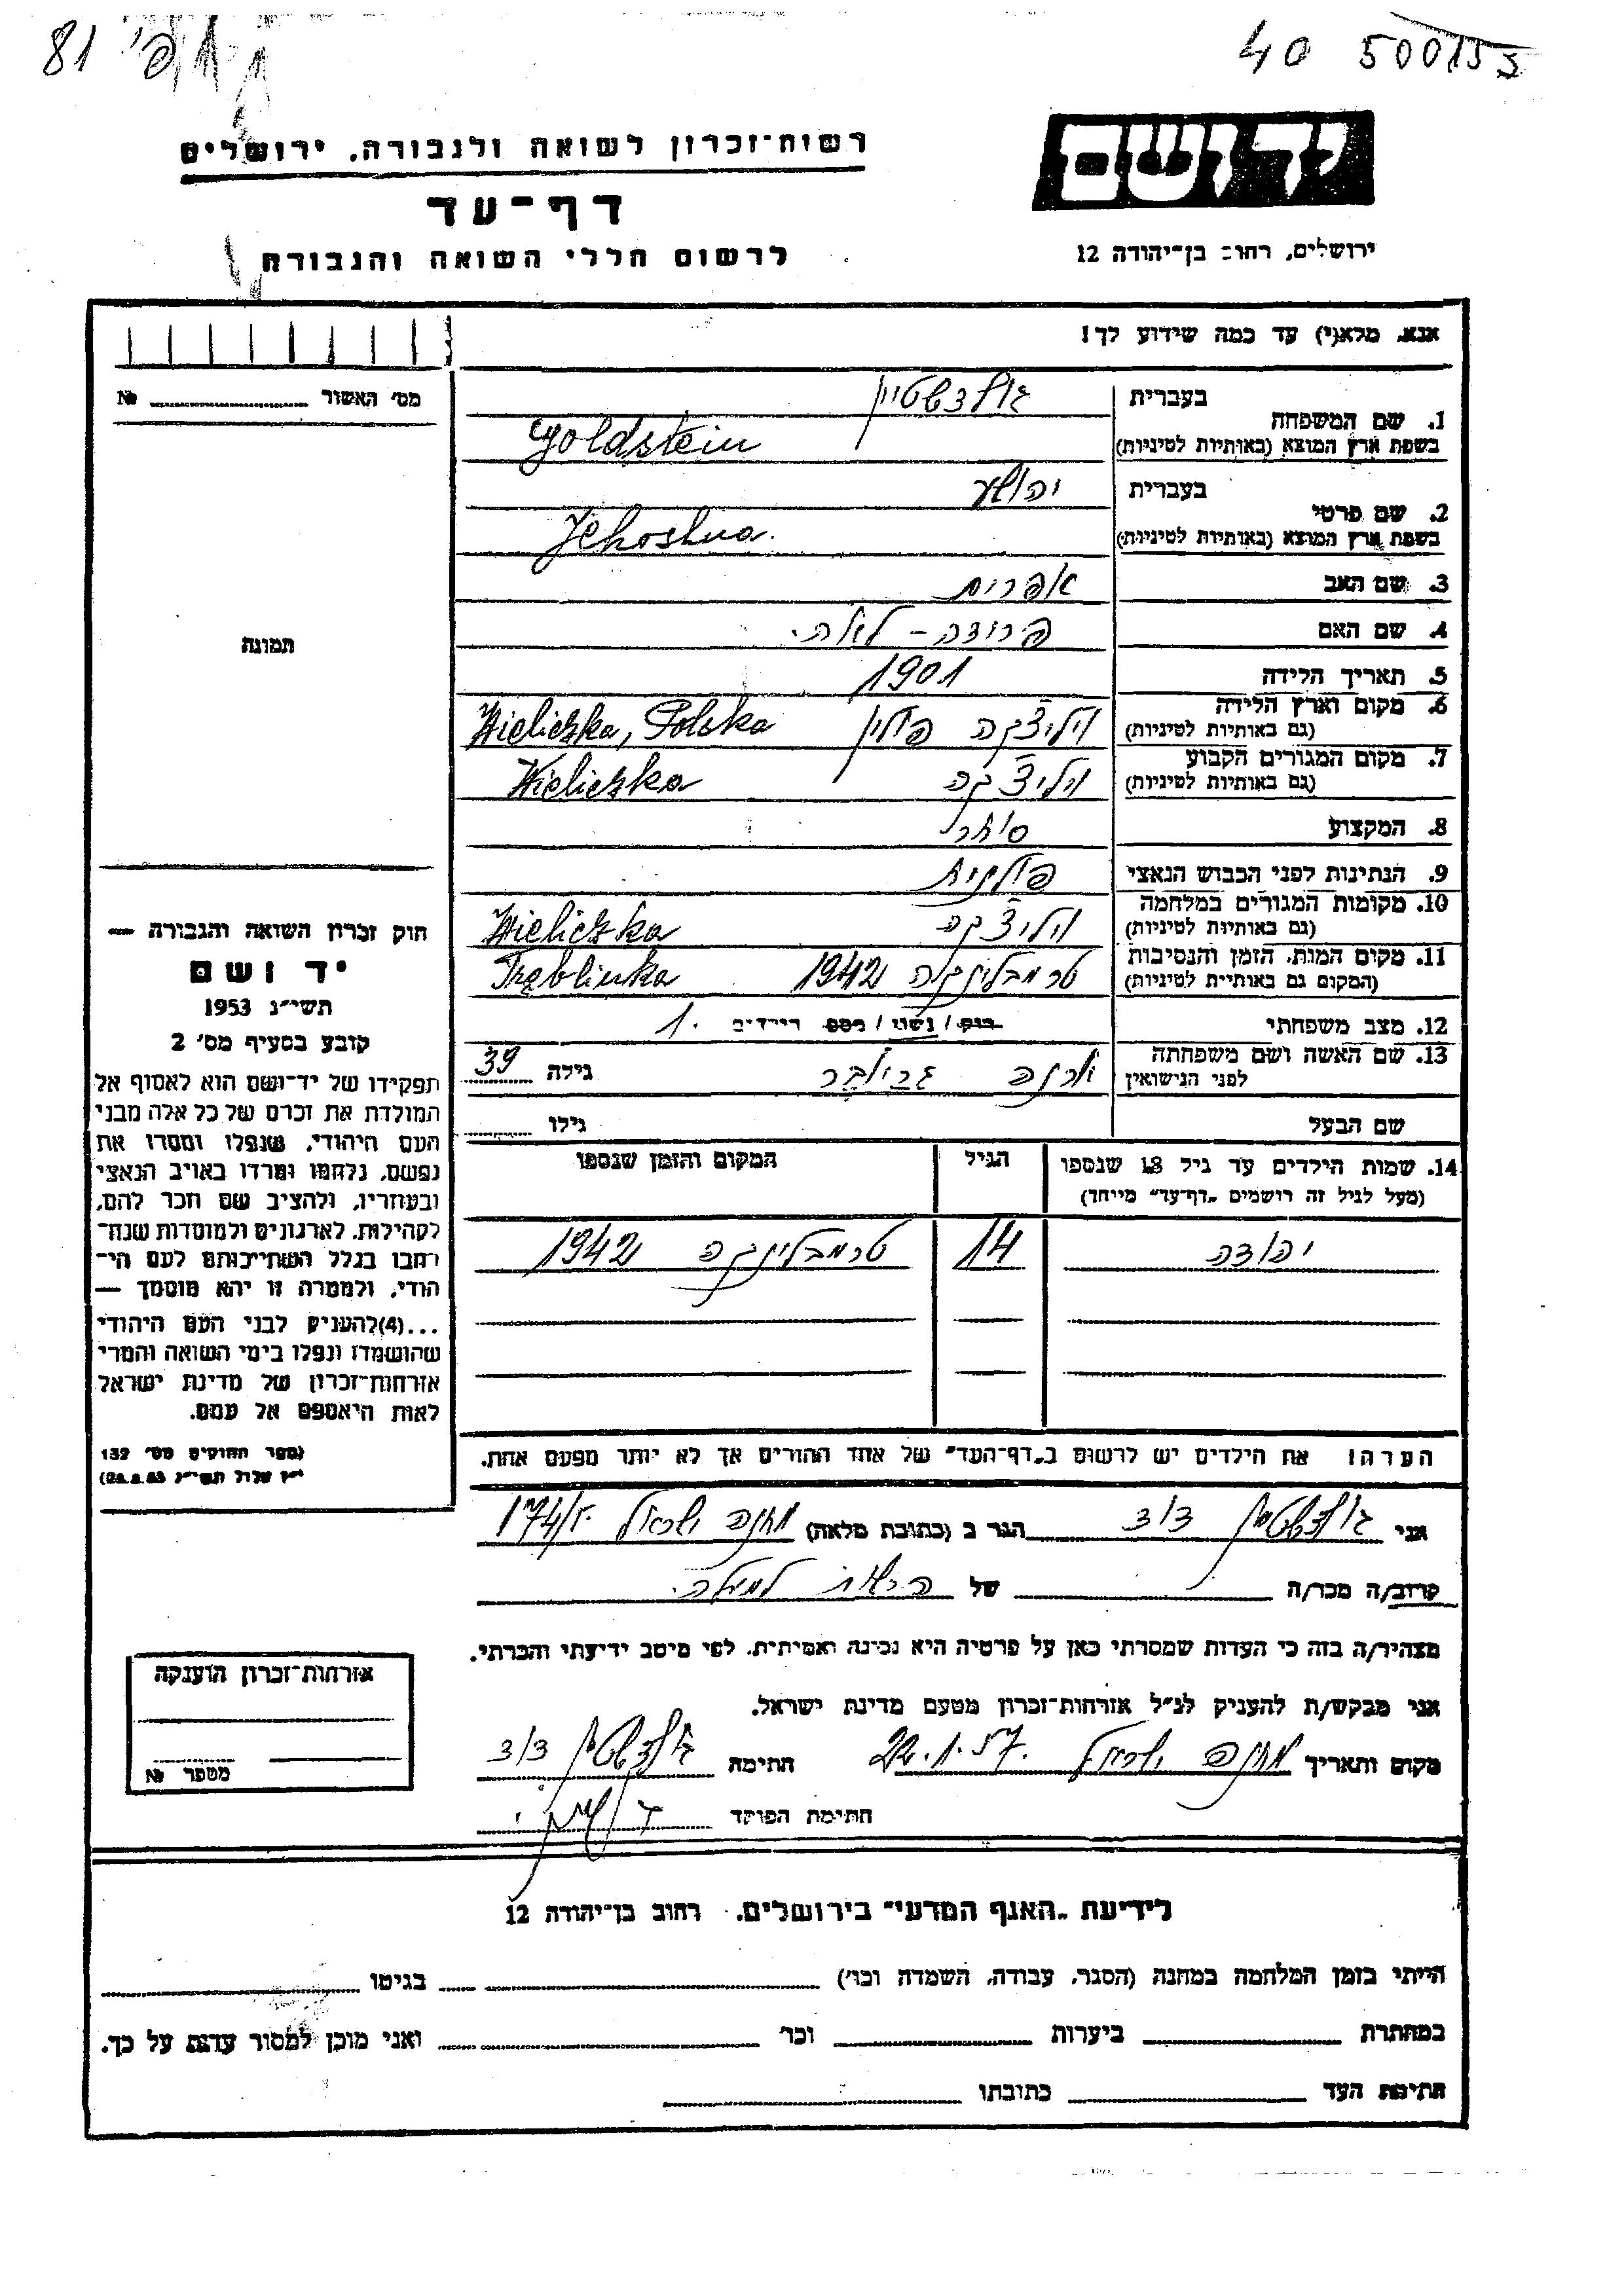 40 500153
81
יד ושם
רשות-זכרון לשואה ולגבורה, ירושלים
דף-עד
לרשום חללי השואה והגבורה
ירושלים, רחוב בן-יהודה 12
אנא, מלא(י) עד כמה שידוע לך!
מס' האשור № 
1. שם המשפחה בעברית גולדשטיין
בשפת ארץ המוצא (באותיות לטיניות) Goldstein
2. שם פרטי בעברית יהושע
בשפת ארץ המוצא (באותיות לטיניות) Jehoshua.
3. שם האב אפרים
4. שם האם פרידה - לאה.
5. תאריך הלידה 1901
6. מקום וארץ הלידה (גם באותיות לטיניות) ויליצ'קה פולין Wieliczka, Polska
7. מקום המגורים הקבוע (גם באותיות לטיניות) ויליצ'קה Wieliczka
8. המקצוע סוחר
9. הנתינות לפני הכבוש הנאצי פולנית
10. מקומות המגורים במלחמה (גם באותיות לטיניות) ויליצ'קה Wieliczka
11. מקום המות, הזמן והנסיבות (המקום גם באותיות לטיניות) טרמבלינקה 1942 Tręblinka
12. מצב משפחתי רוק / נשוי / מספר הילדים 1.
13. שם האשה ושם משפחתה לפני הנישואין גילה 39
שם הבעל גילו
14. שמות הילדים עד גיל 18 שנספו הגיל המקום והזמן שנספו
(מעל לגיל זה רושמים "דף-עד" מיוחד)
יהודה 14 טרמבלינקה 1942
תמונה
חוק זכרון השואה והגבורה —
יד ושם
תשי"ג 1953
קובע בסעיף מס' 2
תפקידו של יד-ושם הוא לאסוף אל
המולדת את זכרם של כל אלה מבני
העם היהודי, שנפלו ומסרו את
נפשם, נלחמו ומרדו באויב הנאצי
ובעוזריו, ולהציב שם וזכר להם,
לקהילות, לארגונים ולמוסדות שנח-
רבו בגלל השתייכותם לעם הי-
הודי, ולמטרה זו יהא מוסמך —
...(4)להעניק לבני העם היהודי
שהושמדו ונפלו בימי השואה והמרי
אזרחות-זכרון של מדינת ישראל
לאות היאספם אל עמם.
(ספר החוקים מס' 132
הערה! את הילדים יש לרשום ב"דף-העד" של אחד ההורים אך לא יותר מפעם אחת.
אני גולדשטיין דוד הגר ב (כתובת מלאה) מחנה ישראל
קרוב/ה מכר/ה של
מצהיר/ה בזה כי העדות שמסרתי כאן על פרטיה היא נכונה ואמיתית, לפי מיטב ידיעתי והכרתי.
אני מבקש/ת להעניק לנ"ל אזרחות-זכרון מטעם מדינת ישראל.
מקום ותאריך מחנה ישראל 22.1.57 חתימה גולדשטיין דוד
חתימת הפוקד
אזרחות-זכרון הוענקה
מספר №
לידיעת "האגף המדעי" בירושלים, רחוב בן-יהודה 12
הייתי בזמן המלחמה במחנה (הסגר, עבודה, השמדה וכו') בגיטו
במחתרת ביערות וכו' ואני מוכן למסור עדות על כך.
חתימת העד כתובתו